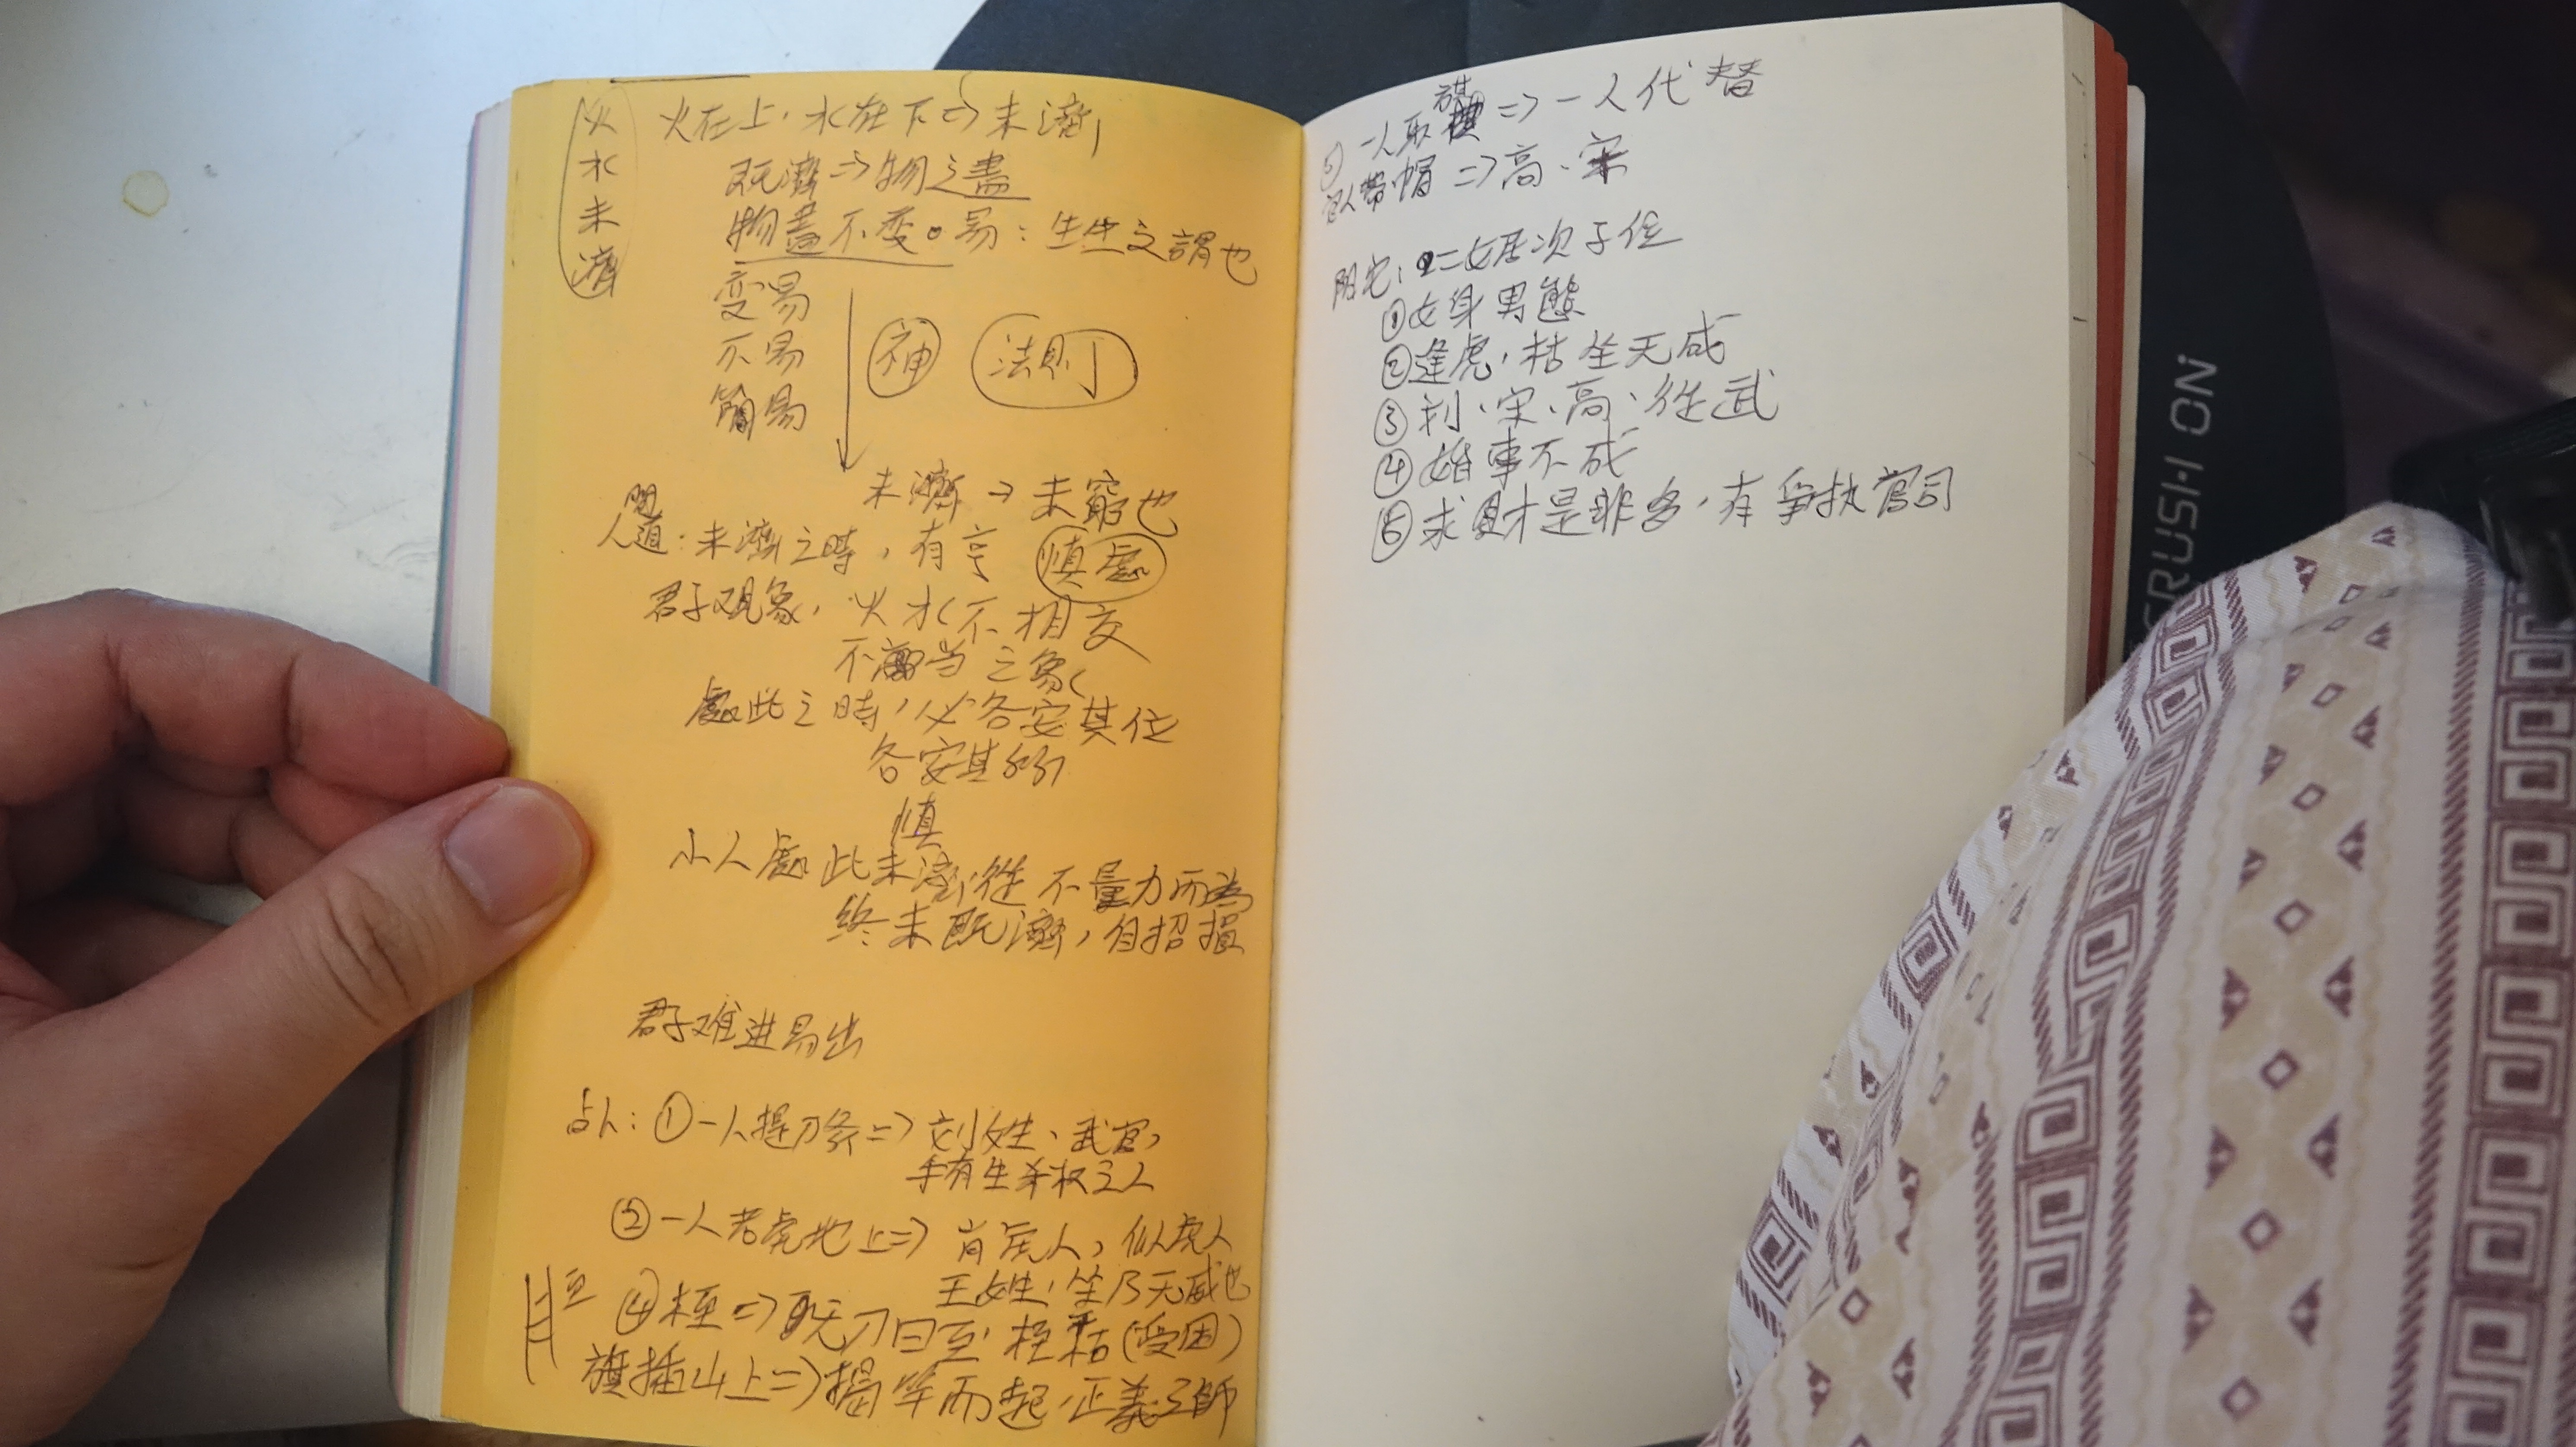 火水未濟
火在上，水在下⇒未濟，
既濟⇒物之盡
物盡不变。易：生生之謂也
变易
不易
簡易
神
法則
未濟→未窮也
人道：未濟之時，有亨
慎處
君子观象，火水不相交
不當之象
處此之時，必各安其位
各安其所
慎
小人處此未濟，從不量力而為
終未既濟，自招損
君子难進易出
占人：①一人提刀斧⇒刘姓、武官，
手有生杀权之人
②一人若虎地上⇒肖虎人，似虎人
王姓，坐乃无威也
④ ⇒ 无刀曰 (受困)
旗插山上⇒揭竿而起，正義之師
⑤一人取旗⇒一人代替
官人带帽⇒高、宋
陽宅：二女居次子位
①女身男態
②逢虎，枯坐无威
③刘、宋、高、從武
④婚事不成
⑤求財是非多，有爭执官司
CRUSH ON